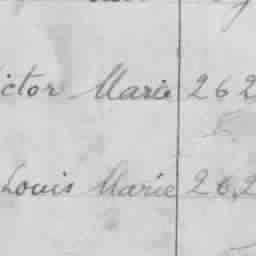 ictor Marie 262
Louis Marie 26,2